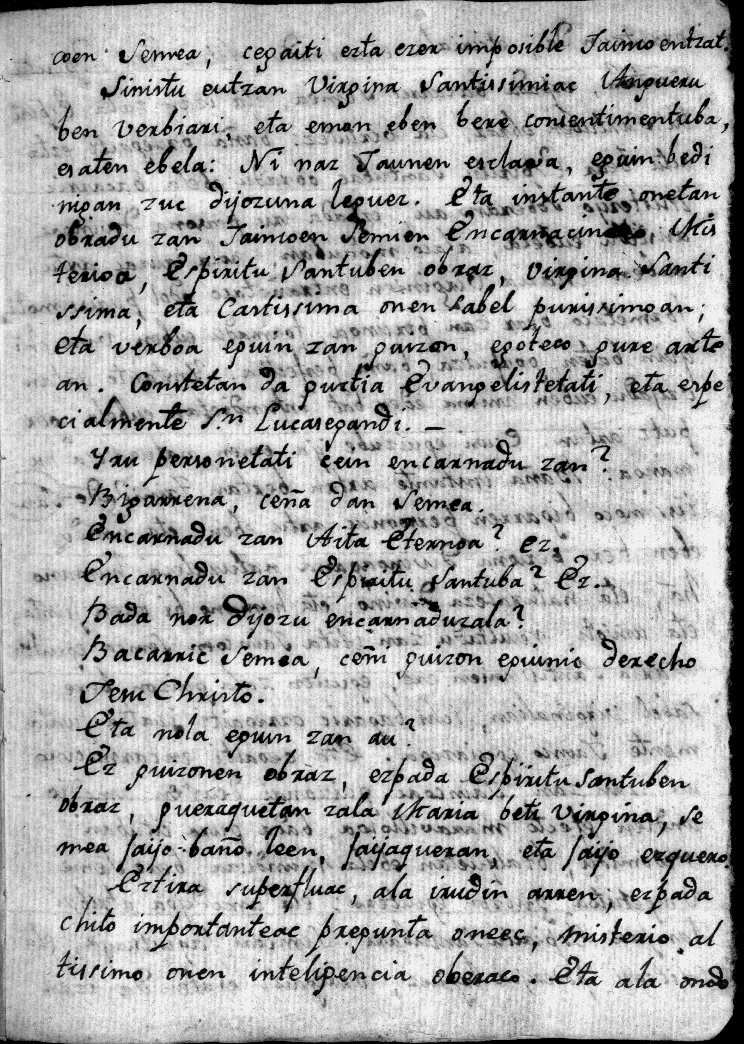 coen Semea, cegaiti ezta ezer imposible Jaincoentzat.
Sinistu eutzan Virgina Santissimiac Angueru
ben verbiari, eta emon eben bere consentimentuba,
esaten ebela: Ni naz Jaunen esclava, eguin bedi
nigan zuc dijozuna leguez. Eta instante onetan
obradu zan Jaincoen Semien Encarnacinoco Mis
terioa, Espiritu Santuben obraz, Virgina Santi
ssima, eta Castissima onen sabel purissimoan;
eta verboa eguin zan guizon, egoteco gure arte
an. Constetan da guztia Evangelistetati, eta espe
cialmente S.n Lucasegandi. —
Yru personetati cein encarnadu zan?
Bigarrena, ceña dan Semea.
Encarnadu zan Aita Eternoa? Ez.
Encarnadu zan Espiritu Santuba? Ez.
Bada nor dijozu encarnaduzala?
Bacarric Semea, ceñi guizon eguinic derecho
Jesu Christo.
Eta nola eguin zan au?
Ez guizonen obraz, ezpada Espiritu Santuben
obraz, gueraquetan zala Maria beti Virgina, se
mea jaijo-baño leen, jaijaqueran, eta jaijo ezquero.
Eztira superfluac, ala irudin arren, ezpada
chito importanteac pregunta oneec, misterio al
tissimo onen inteligencia oberaco. Eta ala ondo